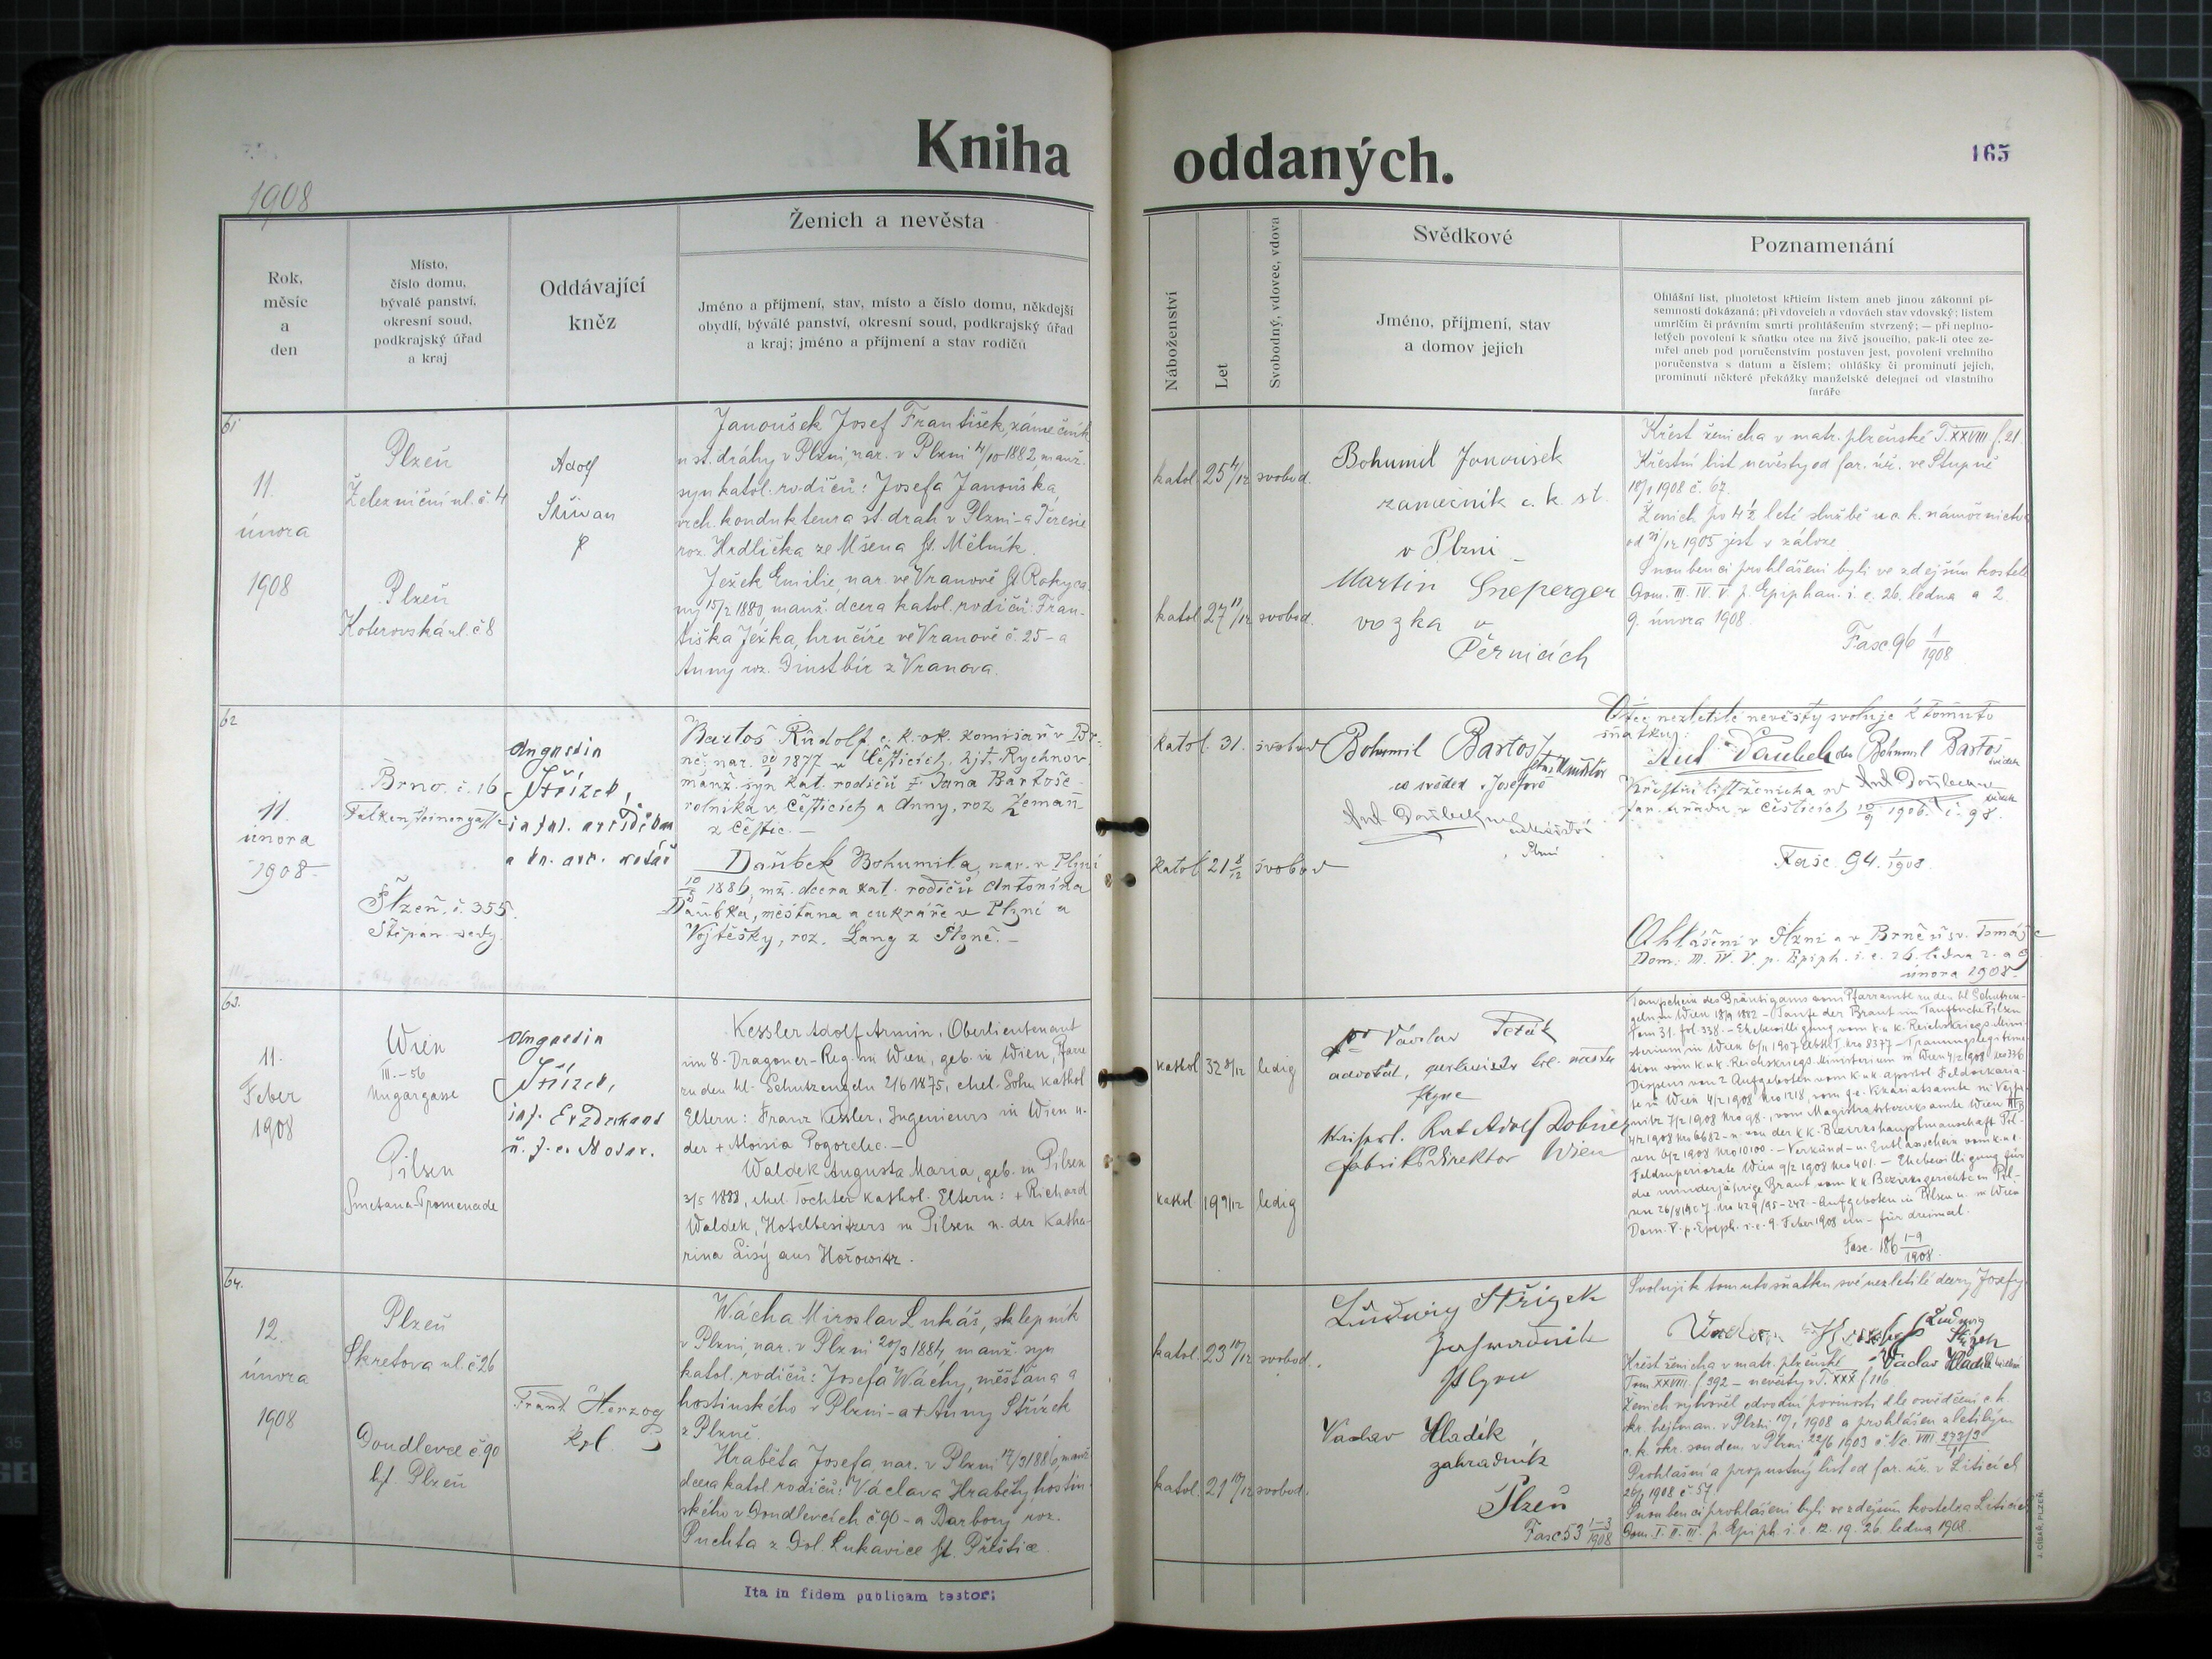 Kniha oddaných.
165
1908
Rok,
měsíc
a
den
Místo,
číslo domu,
bývalé panství,
okresní soud,
podkrajský úřad
a kraj
Oddávající
kněz
Ženich a nevěsta
Jméno a příjmení, stav, místo a číslo domu, někdejší
obydlí, bývalé panství, okresní soud, podkrajský úřad
a kraj; jméno a příjmení a stav rodičů
Náboženství
Let
Svobodný, vdovec, vdova
Svědkové
Jméno, příjmení, stav
a domov jejich
Poznamenání
Ohlášní list, plnoletost křticím listem aneb jinou zákonní pí-
semností dokázaná; při vdovcích a vdovách stav vdovský; listem
umrlčím či právním smrti prohlášením stvrzený; — při neplno-
letých povolení k sňatku otce na živě jsoucího, pak-li otec ze-
mřel aneb pod poručenstvím postaven jest, povolení vrchního
poručenstva s datum a číslem; ohlášky či prominutí jejich,
prominutí některé překážky manželské delegací od vlastního
faráře
61
11.
února
1908
Plzeň
Železniční ul. č. 4
Plzeň
Koterovská ul. č 8
Adolf
Janoušek Josef František, zámečník
u st. dráhy v Plzni, nar. v Plzni 4/10 1882, manž.
syn katol. rodičů: Josefa Janouška,
vrch. kondukteura st. drah v Plzni - a Terezie
roz. Hrdlička ze Mšena hjt. Mělník.
Ježek Emilie, nar. ve Vranově hjt Rokyca-
ny 15/2 1880, manž. dcera katol. rodičů: Fran-
tiška Ježka, hrnčíře ve Vranově č. 25 - a
Anny roz. Dinstbír z Vranova.
katol. 25 4/12 svobod.
katol. 27 11/12 svobod.
Bohumil Janousek
zamečnik c. k. st.
v Plzni
Martin Sneperger
vozka v
Křest ženicha v matr. plzeňské T. XXVIII f. 21.
Křestní list nevěsty od far. úř. ve Stupně
18/1 1908 č. 67.
Ženich po 4½ leté službě u c. k. námořnictva
od 31/12 1905 jest v záloze.
Snoubenci prohlášeni byli ve zdejším kostele
Dom. III. IV. V. p. Epiphan. i. e. 26. ledna a 2.
9. února 1908.
Fasc. 96 1/1908
62
11.
února
1908
Brno. č. 16
Falkensteinergasse
Plzeň, č. 355.
Štěpán. sady.
Augustin
Střízek,
inful. arciděkan
a kn. arc. notář
Bartoš Rudolf, c. k. ok. komisař v Br-
ně, nar. 1877 v Čěsticích, hjt. Rychnov
manž. syn kat. rodičů † Jana Bartoše
rolníka v Čěsticích a Anny, roz Zeman
z Čěstic. —
Daubek Bohumila, nar. v Plzni
10/5 1886, mž. dcera kat. rodičů Antonína
Daubka, měšťana a cukráře v Plzni a
Vojtěšky, roz. Lang z Plzně. —
katol. 31. svobod
katol 21 8/12 svobod
Bohumil Bartoš
co svědek
Otec nezletilé nevěsty svoluje k tomuto
sňatku:
Ant Daubek Bohumil Bartoš
svědek
Křestní list ženicha od
far. úřadu v Čěsticích 10/9 1906. č. 98.
Fasc. 94. 1/1908
Ohlášeni v Plzni a v Brně u sv. Tomáše
Dom. III. IV. V. p. Epiph. i. e. 26. ledna 2. a 9
února 1908.
63.
11.
Feber
1908
Wien
III. - 56
Ungargasse
Pilsen
Smetana-Promenade
Augustin
Střízek,
inf. Erzdechant
u. f. e. Notar.
Kessler Adolf Armin, Oberlieutenant
im 8. Dragoner-Reg. in Wien, geb. in Wien, Pfarre
zu den hl. Schutzengeln 21 6 1875, ehel. Sohn kathol
Eltern: Franz Kessler, Ingenieurs in Wien u.
der + Aloisia Pogorelec. —
Waldek Augusta Maria, geb. in Pilsen
3/5 1888, ehel Tochter kathol. Eltern: + Richard
Waldek, Hotelbesitzers in Pilsen u. der Katha-
rina Lisý aus Hořowitz.
kathol 32 8/12 ledig
kathol 19 9/12 ledig
Václav Peták
advokát,
Rat Adolf
Fabriksdirektor Wien
Taufschein des Bräutigams vom Pfarramte zu den hl Schutzen-
geln in Wien 18/9 1882 - Taufe der Braut im Taufbuche Pilsen
Tom 31. fol. 338. - Ehebewilligung vom k. u. k. Reichskriegs Mini-
sterium in Wien 6/11 1907 Abth. I. Nro 8377 - Trauungslegitima-
tion vom k. u. k. Reichskriegs Ministerium in Wien 4/2 1908
Dispens von 2 Aufgeboten vom k. u. k. apostol. Feldvikaria-
te in Wien 4/2 1908 Nro 1218,
vom Magistratsbezirksamte Wien III
u. von der k. k. Bezirkshauptmannschaft Pil-
sen 6/2 1908 Nro 10100. - Verkünd- u. Entlasschein vom k. u. k.
Feldsuperiorate Wien 9/2 1908 Nro 401. - Ehebewilligung für
die minderjährige Braut vom k. k. Bezirksgerichte in Pil-
sen 26/8 1907 Nro 429/95-242 - Aufgeboten in Pilsen u. in Wien
Dom. V. p. Epiph. i. e. 9. Feber 1908 ein - für dreimal.
Fasc. 186 1-9/1908.
64.
12.
února
1908
Plzeň
Skretova ul. č 26
Doudlevce č. 90
hjt. Plzeň
Frant. Herzog
kpl.
Wácha Miroslav Lukáš, sklepník
v Plzni, nar. v Plzni 20/9 1884, manž. syn
katol. rodičů: Josefa Wáchy, měšťana a
hostinského v Plzni - a + Anny Střízek
z Plzně.
Hraběta Josefa, nar. v Plzni 17/3 1886, manž
dcera katol. rodičů: Václava Hraběty, hostin-
ského v Doudlevcích č 90 - a Barbory roz.
Puchta z Dol. Lukavice hjt. Přeštice.
katol. 23 svobod.
katol. 21 10/12 svobod.
Ludwig Střizek
Vaclav Hladík
zahradník
Plzeň
Fasc. 53 1-3/1908
Svoluji k tomuto sňatku své nezletilé dcery Josefy
Ludwig
Střizek
Vaclav Hladik
Křest ženicha v matr. plzeňské
Tom. XXVIII. f 392 - nevěsty v T. XXX f 116.
Ženich vyhověl odvodní povinosti dle osvědčení c. k.
okr. hejtman. v Plzni 10/1 1908 a prohlášen zletilým
c. k. okr. soudem v Plzni 22/6 1903 č. Nc. VIII 273/3
Prohlášní a propustný list od far. úř. v Liticích
26/1 1908 č. 57.
Snoubenci prohlášeni byli ve zdejším kostele a Liticích
Dom. I. II. III. p. Epiph. i. e. 12. 19. 26. ledna 1908.
Ita in fidem publicam testor:
J. CÍSAŘ, PLZEŇ.